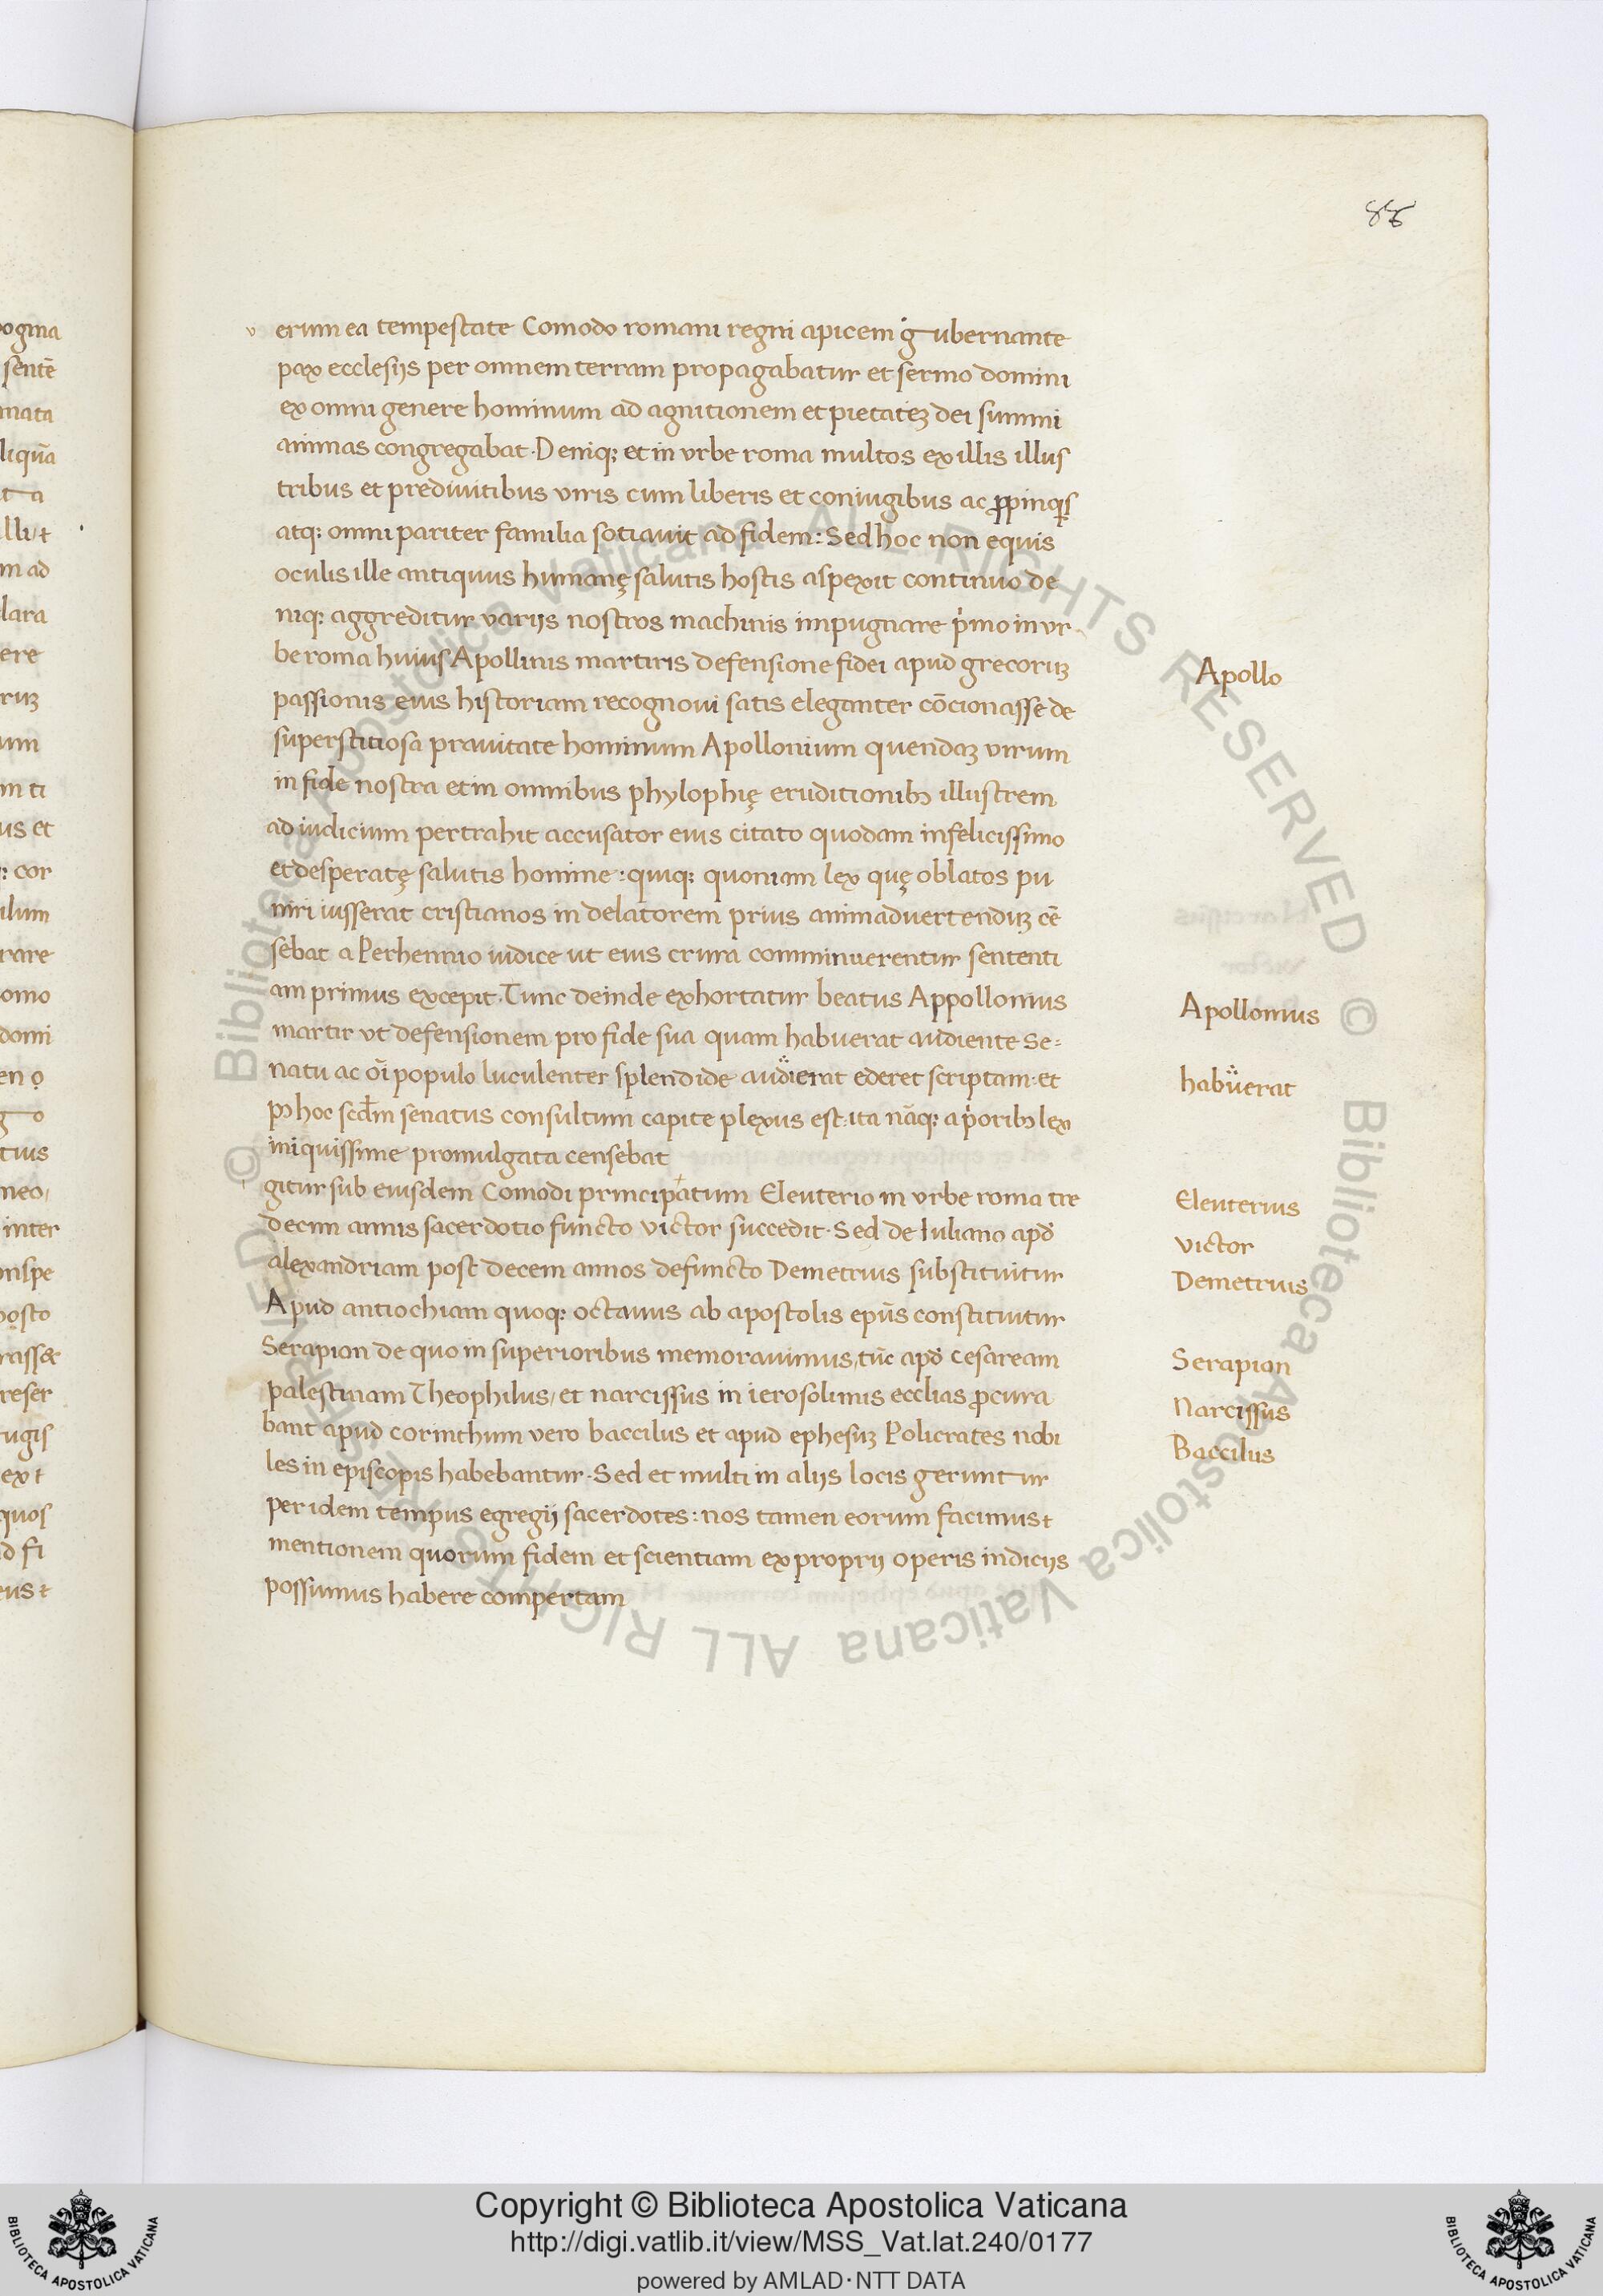 86
v erum ea tempestate Comodo romani regni apicem gubernante
pax ecclesijs per omnem terram propagabatur et sermo domini
ex omni genere hominum ad agnitionem et pietateʒ dei summi
animas congregabat. Deniqꝫ et in vrbe roma multos ex illis illus
tribus et predivitibus viris cum liberis et coniugibus ac ꝓpinqis
atqꝫ omni pariter familia sotiavit ad fidem: Sed hoc non equis
oculis ille antiquus humanę salutis hostis aspexit continuo de
niqꝫ aggreditur varijs nostros machinis impugnare pⁱmo in vr
be roma huius Apollinis martiris defensione fidei apud grecoruʒ
passionis eius historiam recognovi satis eleganter cōcionasse de
superstitiosa pravitate hominum Apollonium quendaʒ virum
in fide nostra et in omnibus phylophię eruditionibꝫ illustrem
ad iudicium pertrahit accusator eius citato quodam infelicissimo
et desperatę salutis homine: quiqꝫ quoniam lex quę oblatos pu
niri iusserat cristianos in delatorem prius animadvertenduʒ cē
sebat a Perhennio iudice ut eius crura comminuerentur sententi
am primus excepit. Tunc deinde exhortatur beatus Appollonius
martir vt defensionem pro fide sua quam habuerat audiente Se=
natu ac oī populo luculenter splendide audierat ederet scriptam: et
pꝰ hoc scdm senatus consultum capite plexus est: ita nāqꝫ a pⁱoribꝫ lex
iniquissime promulgata censebat
i gitur sub eiusdem Comodi principatum Eleuterio in vrbe roma tre
decim annis sacerdotio functo victor succedit. Sed de Iuliano apd
alexandriam post decem annos defuncto Demetrius substituitur
Apud antiochiam quoqꝫ octavus ab apostolis epūs constituitur
Serapion de quo in superioribus memoravimus, tūc apd cesaream
palestinam Theophilus, et narcissus in ierosolimis ecclias ꝓcura
bant apud corinthum vero baccilus et apud ephesuʒ Policrates nobi
les in episcopis habebantur. Sed et multi in alijs locis geruntur
per idem tempus egregij sacerdotes: nos tamen eorum facimus
mentionem quorum fidem et scientiam ex proprij operis indicijs
possumus habere compertam
Apollo
Apollonius
habuerat
Eleuterius
victor
Demetrius
Serapion
Narcissus
Baccilus
© Biblioteca Apostolica Vaticana ALL RIGHTS RESERVED
© Biblioteca Apostolica Vaticana ALL RIGHTS RESERVED
Copyright © Biblioteca Apostolica Vaticana
http://digi.vatlib.it/view/MSS_Vat.lat.240/0177
powered by AMLAD·NTT DATA
BIBLIOTECA APOSTOLICA VATICANA
BIBLIOTECA APOSTOLICA VATICANA